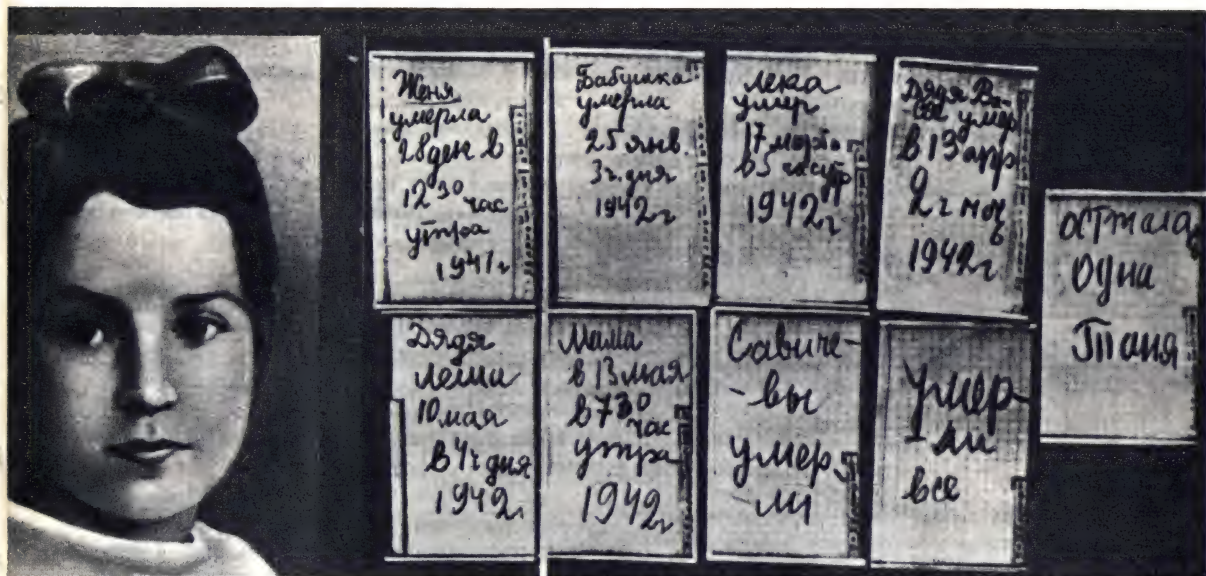 Женя
умерла
28 ден в
12 30 час
утра
1941 г
Бабушка
умерла
25 янв.
3 ч. дня
1942 г
Лека
умер
17 марта
в 5 час утр
1942 г
Дядя Ва-
ся умер
в 13 апр
2 ч ночь
1942 г
Дядя
Леша
10 мая
в 4 ч дня
1942 г
Мама
в 13 мая
в 7 30 час
утра
1942 г
Савиче-
-вы
умер-
-ли
Умер-
-ли
все
Осталась
одна
Таня